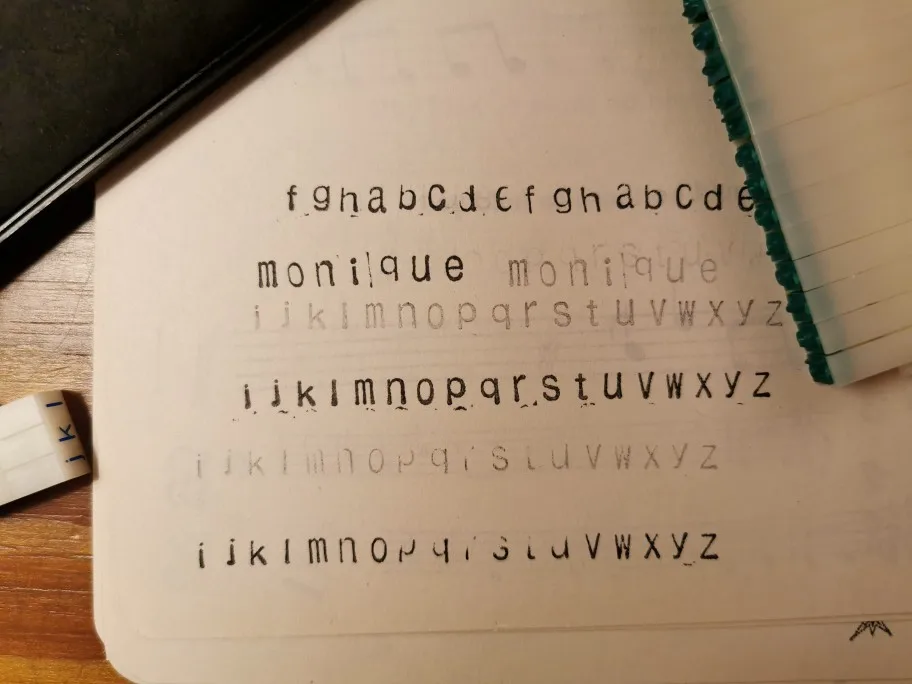 f g h a b C d e f g h a b C d e
monique monique
i j k l m n o p q r s t u v w x y z
i j k l m n o p q r s t u v w x y z
i j k l m n o p q r s t u v w x y z
i j k l m n o p q r s t u v w x y z
j k l